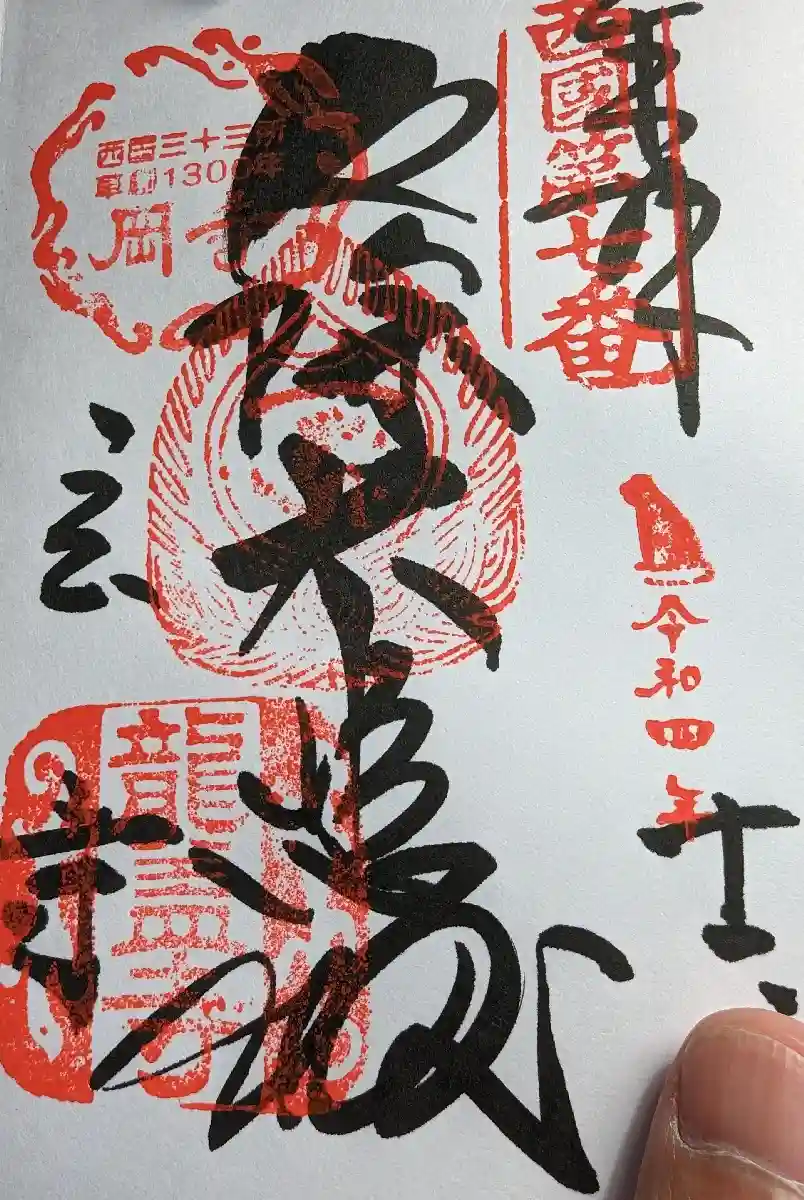 奉拝
西國第七番
令和四年
十二
大悲殿
西国三十三所
草創1300年
岡寺
寺
龍蓋寺